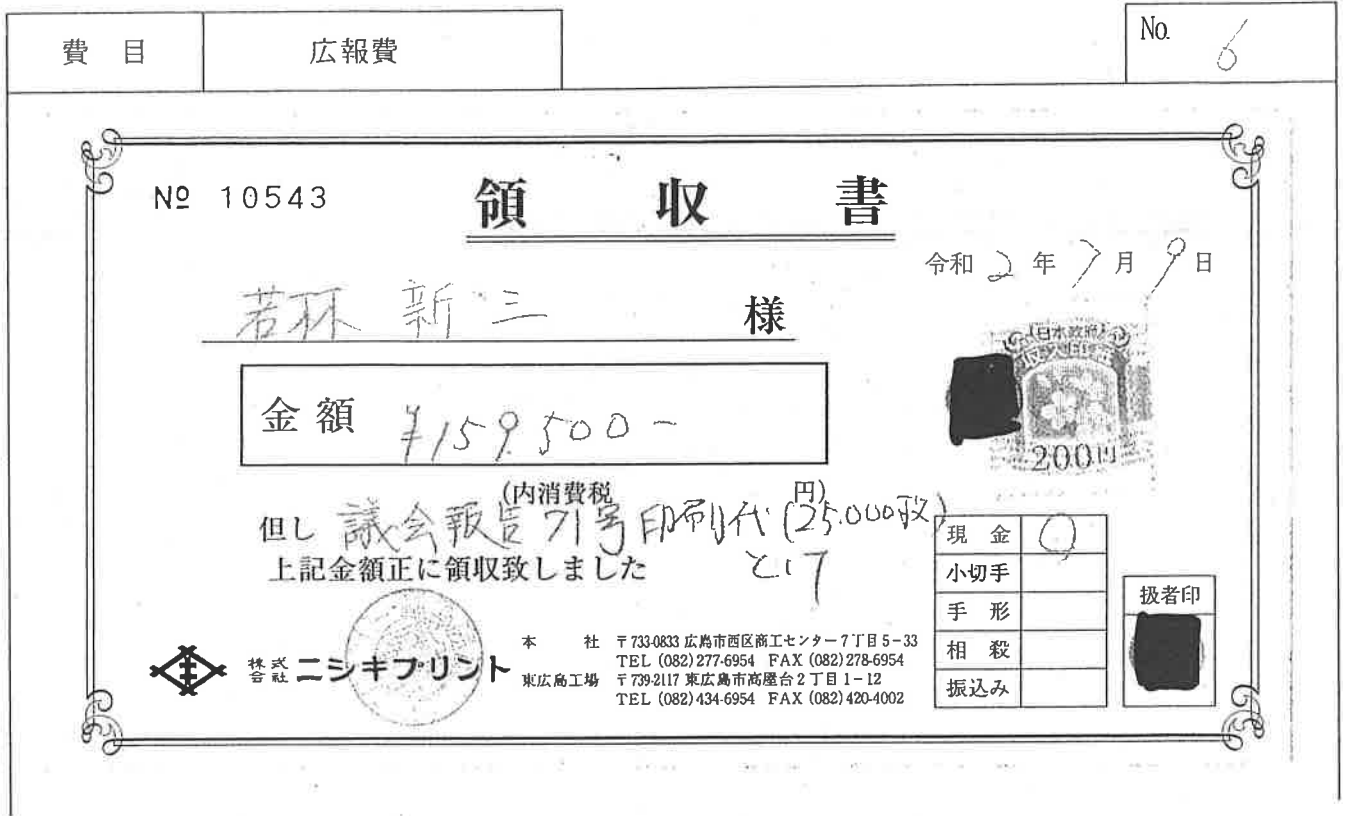 費 目 広報費 No. 6
№ 10543 領 収 書
令和 2 年 7 月 9 日
若林 新三 様
日本政府
収入印紙
200円
金額 ¥159,500-
(内消費税 円)
但し 議会報告 71号印刷代 (25,000枚)
上記金額正に領収致しました として
現 金 ○
小切手
手 形
相 殺
振込み
扱者印
株式会社 ニシキプリント
本 社 〒733-0833 広島市西区商工センター7丁目5-33
TEL (082)277-6954 FAX (082)278-6954
東広島工場 〒739-2117 東広島市高屋台2丁目1-12
TEL (082)434-6954 FAX (082)420-4002